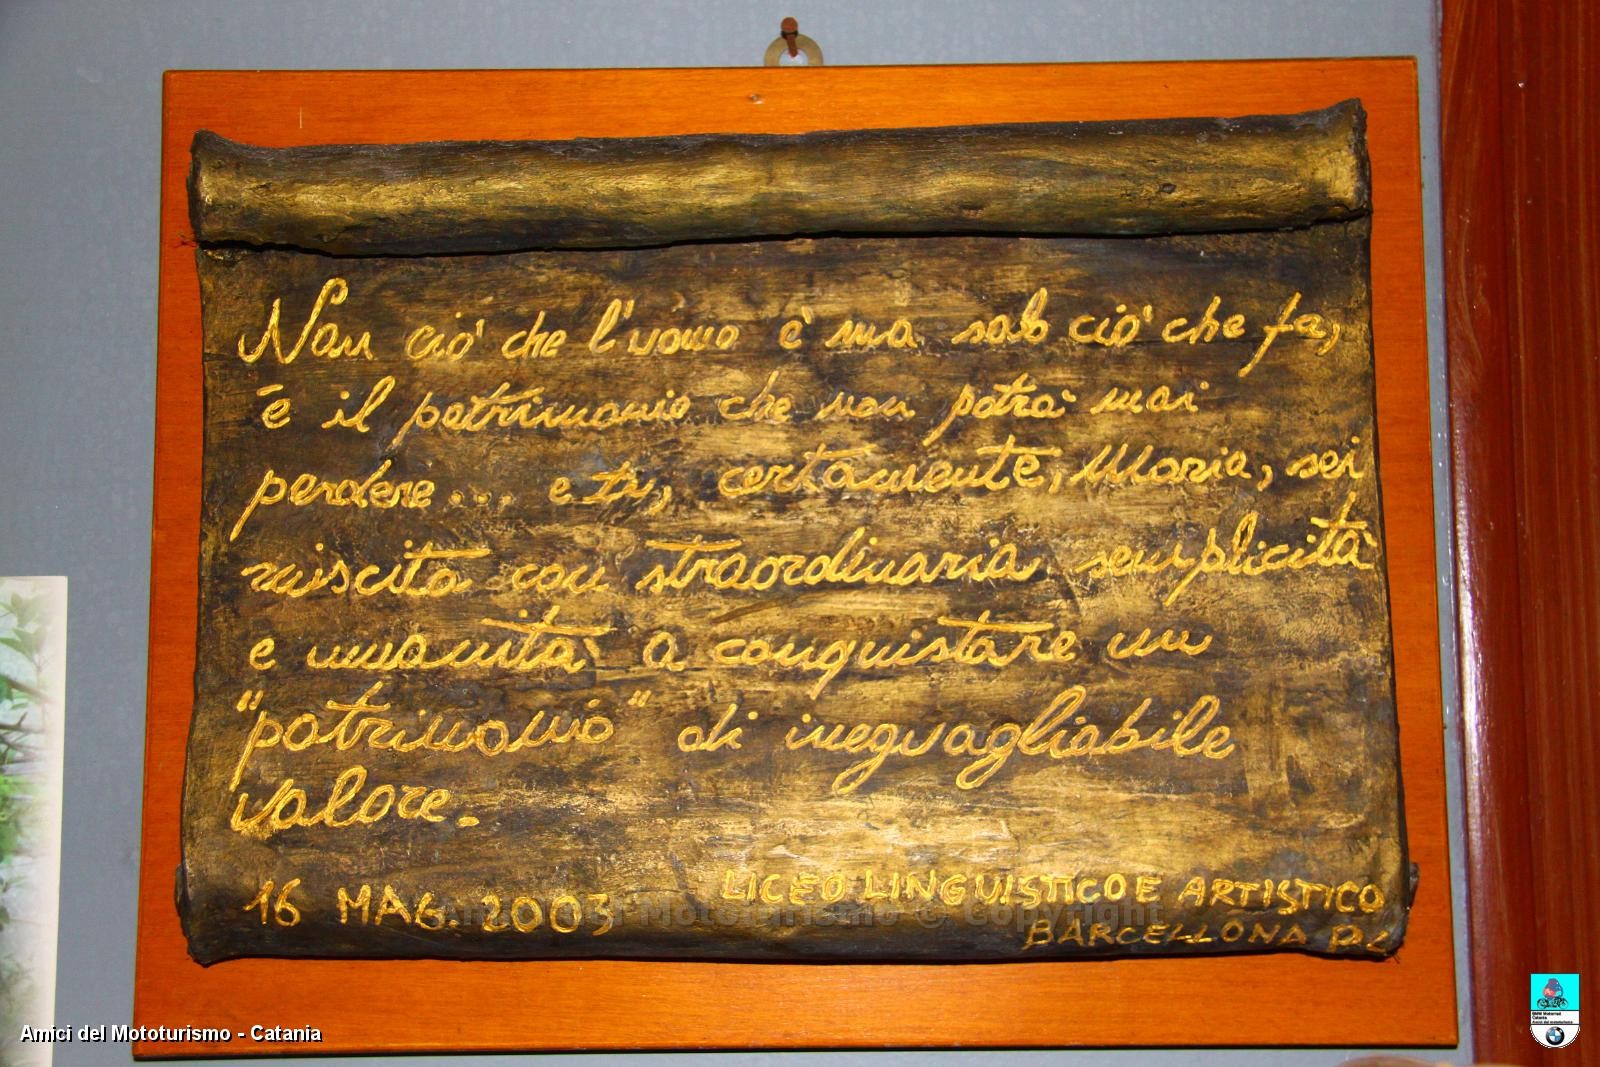 Non ciò che l'uomo è ma solo ciò che fa,
è il patrimonio che non potrà mai
perdere... e tu, certamente, Maria, sei
riuscita con straordinaria semplicità
e umanità a conquistare un
"patrimonio" di ineguagliabile
valore.
16 MAG. 2003
LICEO LINGUISTICO E ARTISTICO
BARCELLONA P.
Amici del Mototurismo © Copyright
Amici del Mototurismo - Catania
BMW Motorrad
Catania
Amici del mototurismo